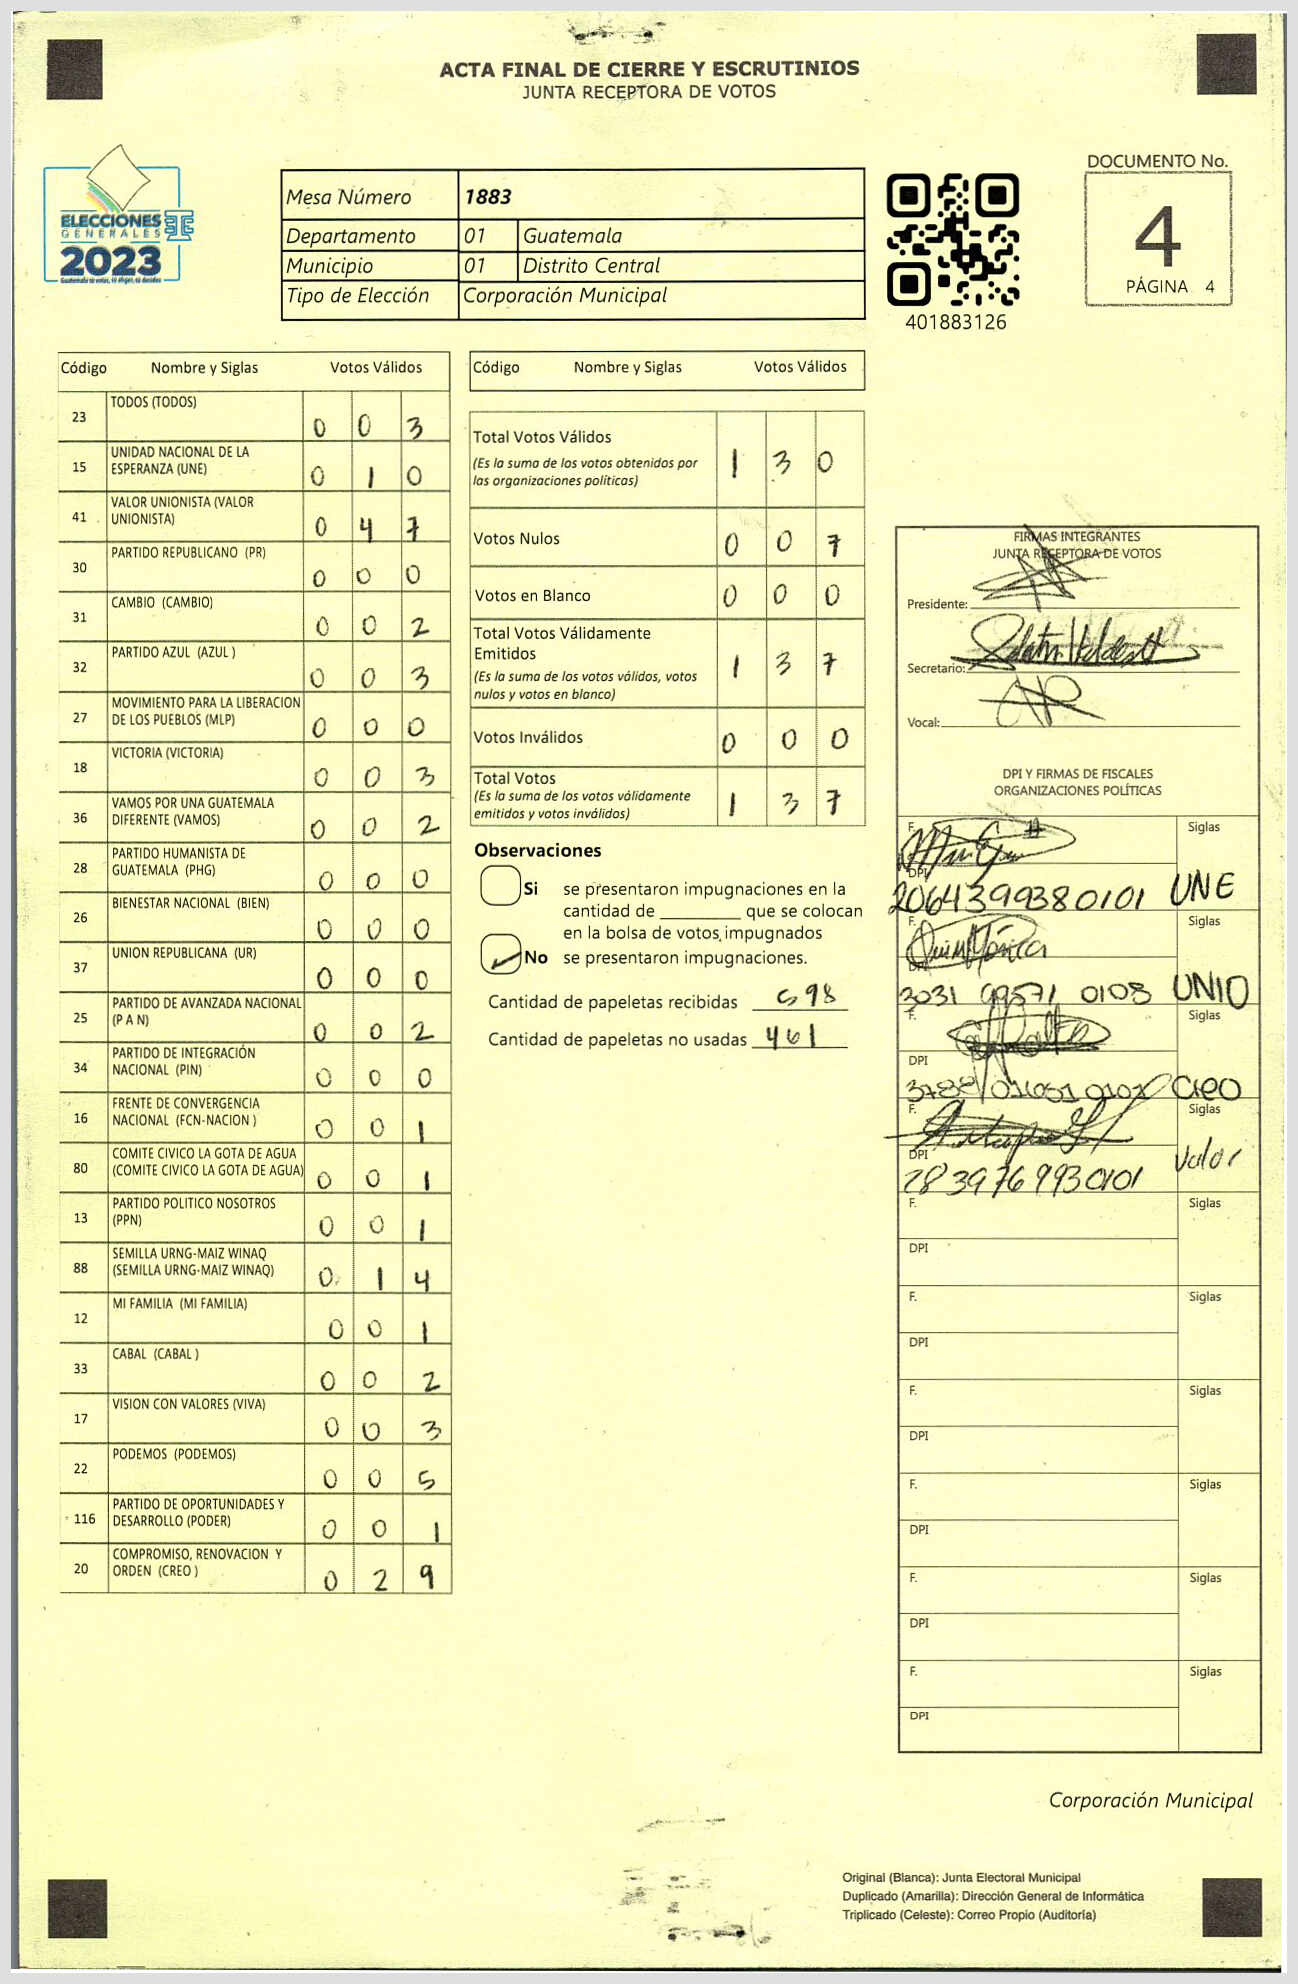 ACTA FINAL DE CIERRE Y ESCRUTINIOS
JUNTA RECEPTORA DE VOTOS
ELECCIONES
GENERALES
2023
Mesa Número 1883
Departamento 01 Guatemala
Municipio 01 Distrito Central
Tipo de Elección Corporación Municipal
401883126
DOCUMENTO No.
4
PÁGINA 4
Código Nombre y Siglas Votos Válidos
23 TODOS (TODOS) 0 0 3
15 UNIDAD NACIONAL DE LA
ESPERANZA (UNE) 0 1 0
41 VALOR UNIONISTA (VALOR
UNIONISTA) 0 4 7
30 PARTIDO REPUBLICANO (PR) 0 0 0
31 CAMBIO (CAMBIO) 0 0 2
32 PARTIDO AZUL (AZUL ) 0 0 3
27 MOVIMIENTO PARA LA LIBERACION
DE LOS PUEBLOS (MLP) 0 0 0
18 VICTORIA (VICTORIA) 0 0 3
36 VAMOS POR UNA GUATEMALA
DIFERENTE (VAMOS) 0 0 2
28 PARTIDO HUMANISTA DE
GUATEMALA (PHG) 0 0 0
26 BIENESTAR NACIONAL (BIEN) 0 0 0
37 UNION REPUBLICANA (UR) 0 0 0
25 PARTIDO DE AVANZADA NACIONAL
(P A N) 0 0 2
34 PARTIDO DE INTEGRACIÓN
NACIONAL (PIN) 0 0 0
16 FRENTE DE CONVERGENCIA
NACIONAL (FCN-NACION ) 0 0 1
80 COMITE CIVICO LA GOTA DE AGUA
(COMITE CIVICO LA GOTA DE AGUA) 0 0 1
13 PARTIDO POLITICO NOSOTROS
(PPN) 0 0 1
88 SEMILLA URNG-MAIZ WINAQ
(SEMILLA URNG-MAIZ WINAQ) 0 1 4
12 MI FAMILIA (MI FAMILIA) 0 0 1
33 CABAL (CABAL ) 0 0 2
17 VISION CON VALORES (VIVA) 0 0 3
22 PODEMOS (PODEMOS) 0 0 5
116 PARTIDO DE OPORTUNIDADES Y
DESARROLLO (PODER) 0 0 1
20 COMPROMISO, RENOVACION Y
ORDEN (CREO ) 0 2 9
Código Nombre y Siglas Votos Válidos
Total Votos Válidos 1 3 0
(Es la suma de los votos obtenidos por
las organizaciones políticas)
Votos Nulos 0 0 7
Votos en Blanco 0 0 0
Total Votos Válidamente
Emitidos 1 3 7
(Es la suma de los votos válidos, votos
nulos y votos en blanco)
Votos Inválidos 0 0 0
Total Votos 1 3 7
(Es la suma de los votos válidamente
emitidos y votos inválidos)
Observaciones
Si se presentaron impugnaciones en la
cantidad de ________ que se colocan
en la bolsa de votos impugnados
No se presentaron impugnaciones.
Cantidad de papeletas recibidas 598
Cantidad de papeletas no usadas 461
FIRMAS INTEGRANTES
JUNTA RECEPTORA DE VOTOS
Presidente:
Secretario:
Vocal:
DPI Y FIRMAS DE FISCALES
ORGANIZACIONES POLÍTICAS
F. Siglas
DPI
2064399380101 UNE
F. Siglas
DPI
3031 99571 0108 UNIO
F. Siglas
DPI
CREO
F. Siglas
DPI
2839769930101 Valor
F. Siglas
DPI
F. Siglas
DPI
F. Siglas
DPI
F. Siglas
DPI
F. Siglas
DPI
F. Siglas
DPI
Corporación Municipal
Original (Blanca): Junta Electoral Municipal
Duplicado (Amarilla): Dirección General de Informática
Triplicado (Celeste): Correo Propio (Auditoría)